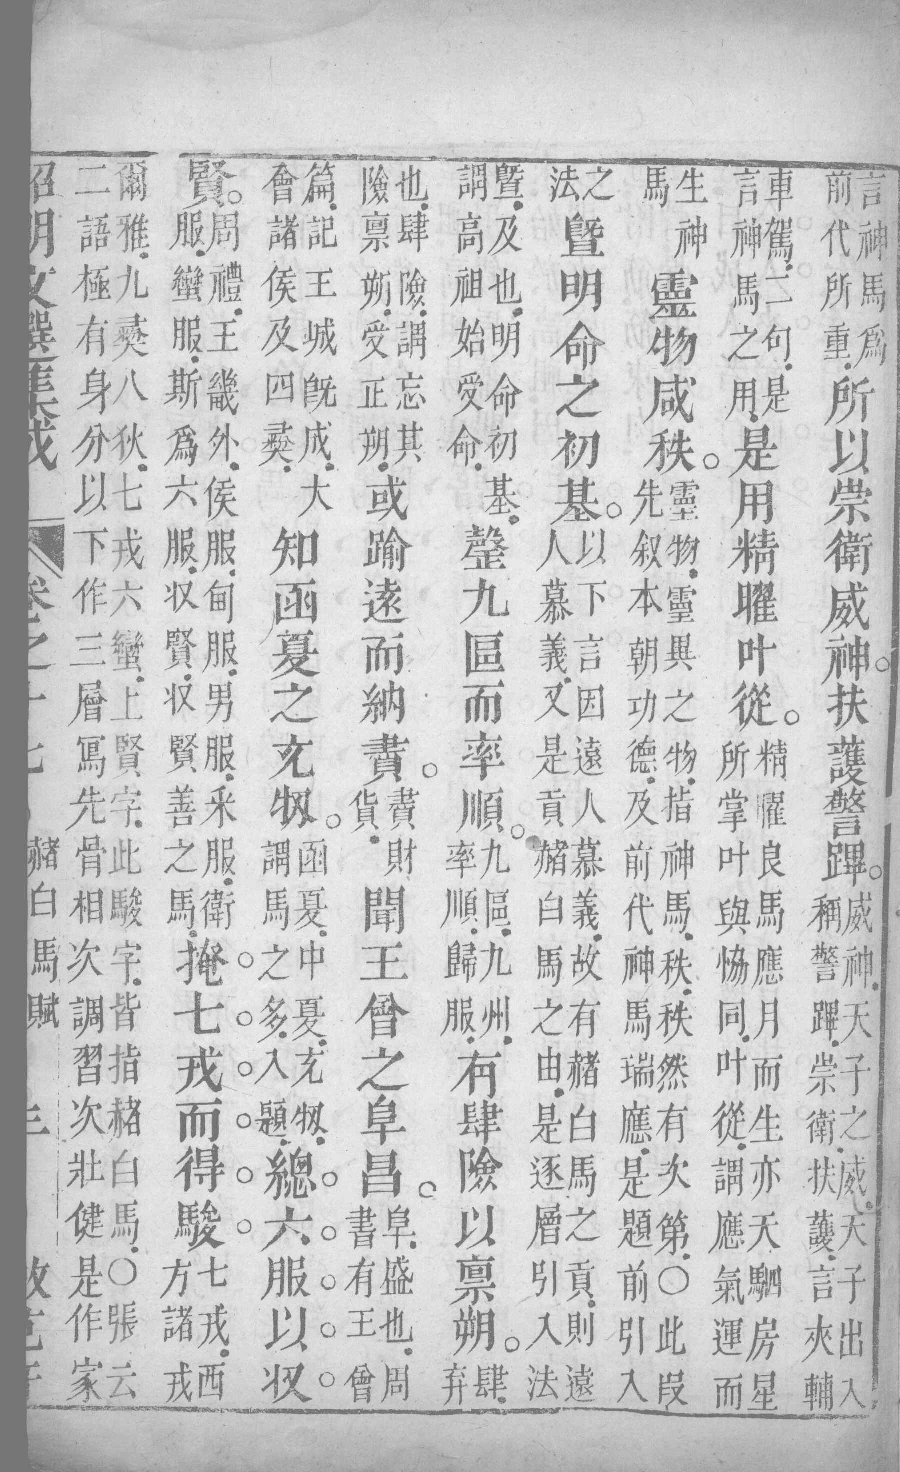 言神馬爲
前代所重.所以崇衛威神。扶護警蹕。威神.天子之威.天子出入
稱警蹕.崇衛.扶護.言夾輔
車駕.二句.是
言神馬之用.是用精曜叶從。精曜良馬應月而生亦天駟房星
所掌叶與恊同.叶從.謂應氣運而
生神
馬靈物咸秩。靈物.靈異之物.指神馬.秩.秩然有次第.○此段
先叙本朝功德.及前代神馬瑞應.是題前引入
之
法曁明命之初基。以下言因遠人慕義.故有赭白馬之貢.則遠
人慕義.又是貢赭白馬之由.是逐層引入法
曁.及也.明命初基.
謂高祖始受命.罄九區而率順。九區.九州.
率順.歸服.有肆險以禀朔。肆.
弃
也.肆險.謂忘其
險禀朔.受正朔.或踰遠而納賮。賮財
貨.聞王會之阜昌。阜.盛也.周
書有王會
篇.記王城旣成.大
會諸侯及四彞.知函夏之充牣。函夏.中夏.充牣.
謂馬之多.入題.總六服以収
賢。周禮.王畿外.侯服.甸服.男服.采服.衛
服.蠻服.斯爲六服.収賢.収賢善之馬.掩七戎而得駿七戎.西
方諸戎
爾雅.九彞八狄.七戎六蠻.上賢字.此駿字.皆指赭白馬.○張云
二語極有身分以下作三層寫先骨相次調習次壯健是作家
昭明文選集成 卷之十七 赭白馬賦